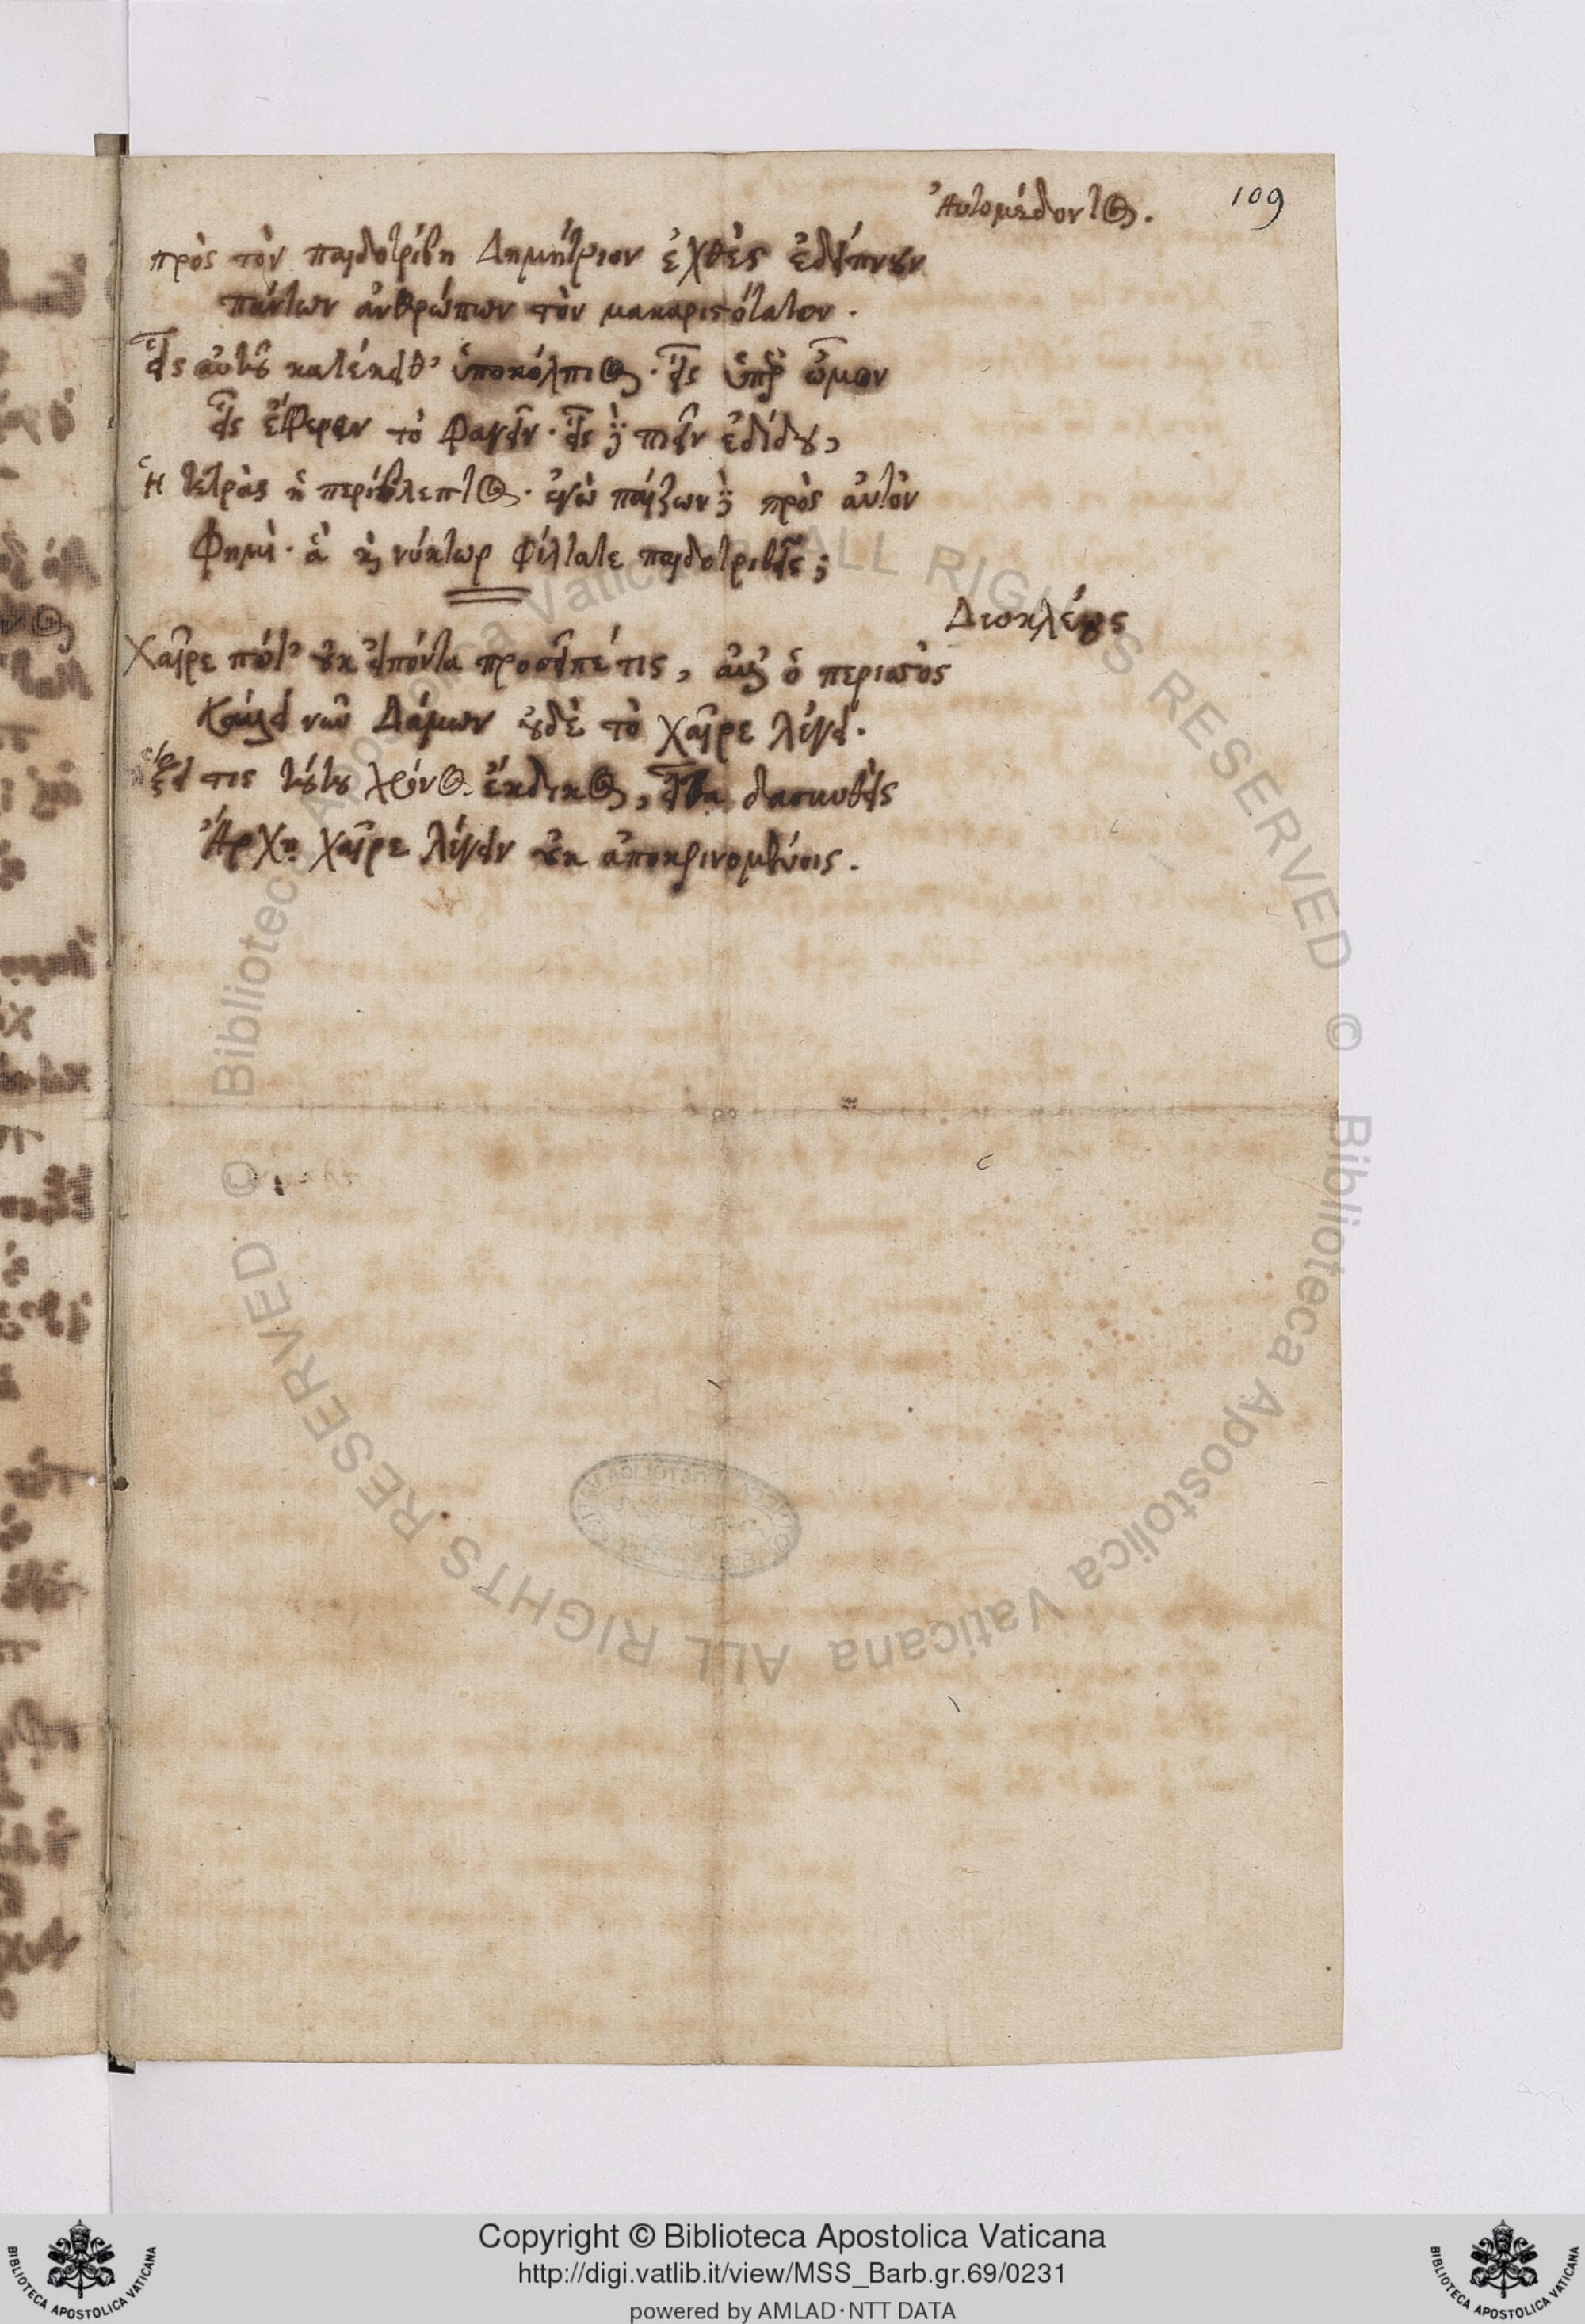 109
Αὐτομέδοντος.
πρὸς τὸν παιδοτρίβην Δημήτριον ἐχθὲς ἐδείπνουν
πάντων ἀνθρώπων τὸν μακαριστότατον.
εἷς αὐτοῦ κατέκειθ' ὑποκόλπιος. εἷς ὑπὲρ ὦμον
εἷς ἔφερεν τὸ φαγεῖν. εἷς δὲ πιεῖν ἐδίδου,
Ἡ τετρὰς ἡ περίβλεπτος. ἐγὼ παίζων δὲ πρὸς αὐτὸν
Φημὶ. ἆ καὶ νύκτωρ φίλτατε παιδοτριβεῖς;
Διοκλέους
Χαῖρε πότ' οὐκ εἰπόντα προσεῖπέ τις, ἀλλ' ὁ περισσὸς
νῦν Δάμων οὐδὲ τὸ χαῖρε λέγει.
ἥξει τις τούτου χρόνος ἔκδικος, εἶτα δασυνθεὶς
Ἄρχῃ χαῖρε λέγειν οὐκ ἀποκρινομένοις.
Copyright © Biblioteca Apostolica Vaticana
http://digi.vatlib.it/view/MSS_Barb.gr.69/0231
powered by AMLAD·NTT DATA
BIBLIOTECA APOSTOLICA VATICANA
BIBLIOTECA APOSTOLICA VATICANA
© Biblioteca Apostolica Vaticana ALL RIGHTS RESERVED © Biblioteca Apostolica Vaticana ALL RIGHTS RESERVED